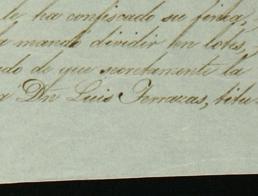 le ha confiscado su finca,
a mandó dividir en lotes,
ado de que secretamente la
a Dn Luis Terrazas, titu